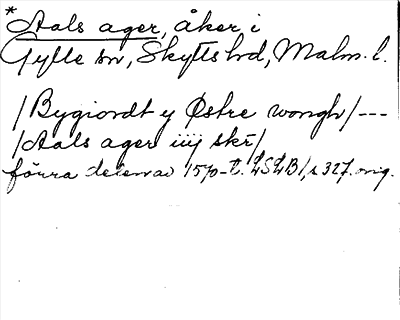 *Aals ager, åker i
Gylle sn, Skytts hd, Malm. l.
/Bygiordt y Østre wongh/---
/Aals ager iiij skr/
förra delen av 1570-t. LSLB/, s 327. orig.